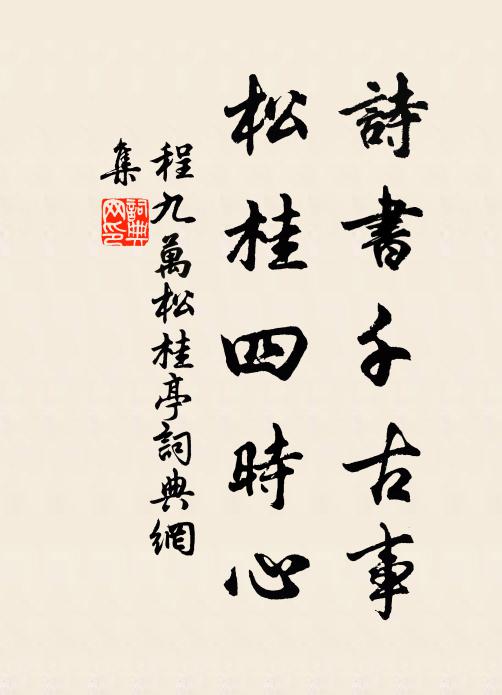 詩書千古事
松桂四時心
程九萬松桂亭詞典網
集
詞典
网印